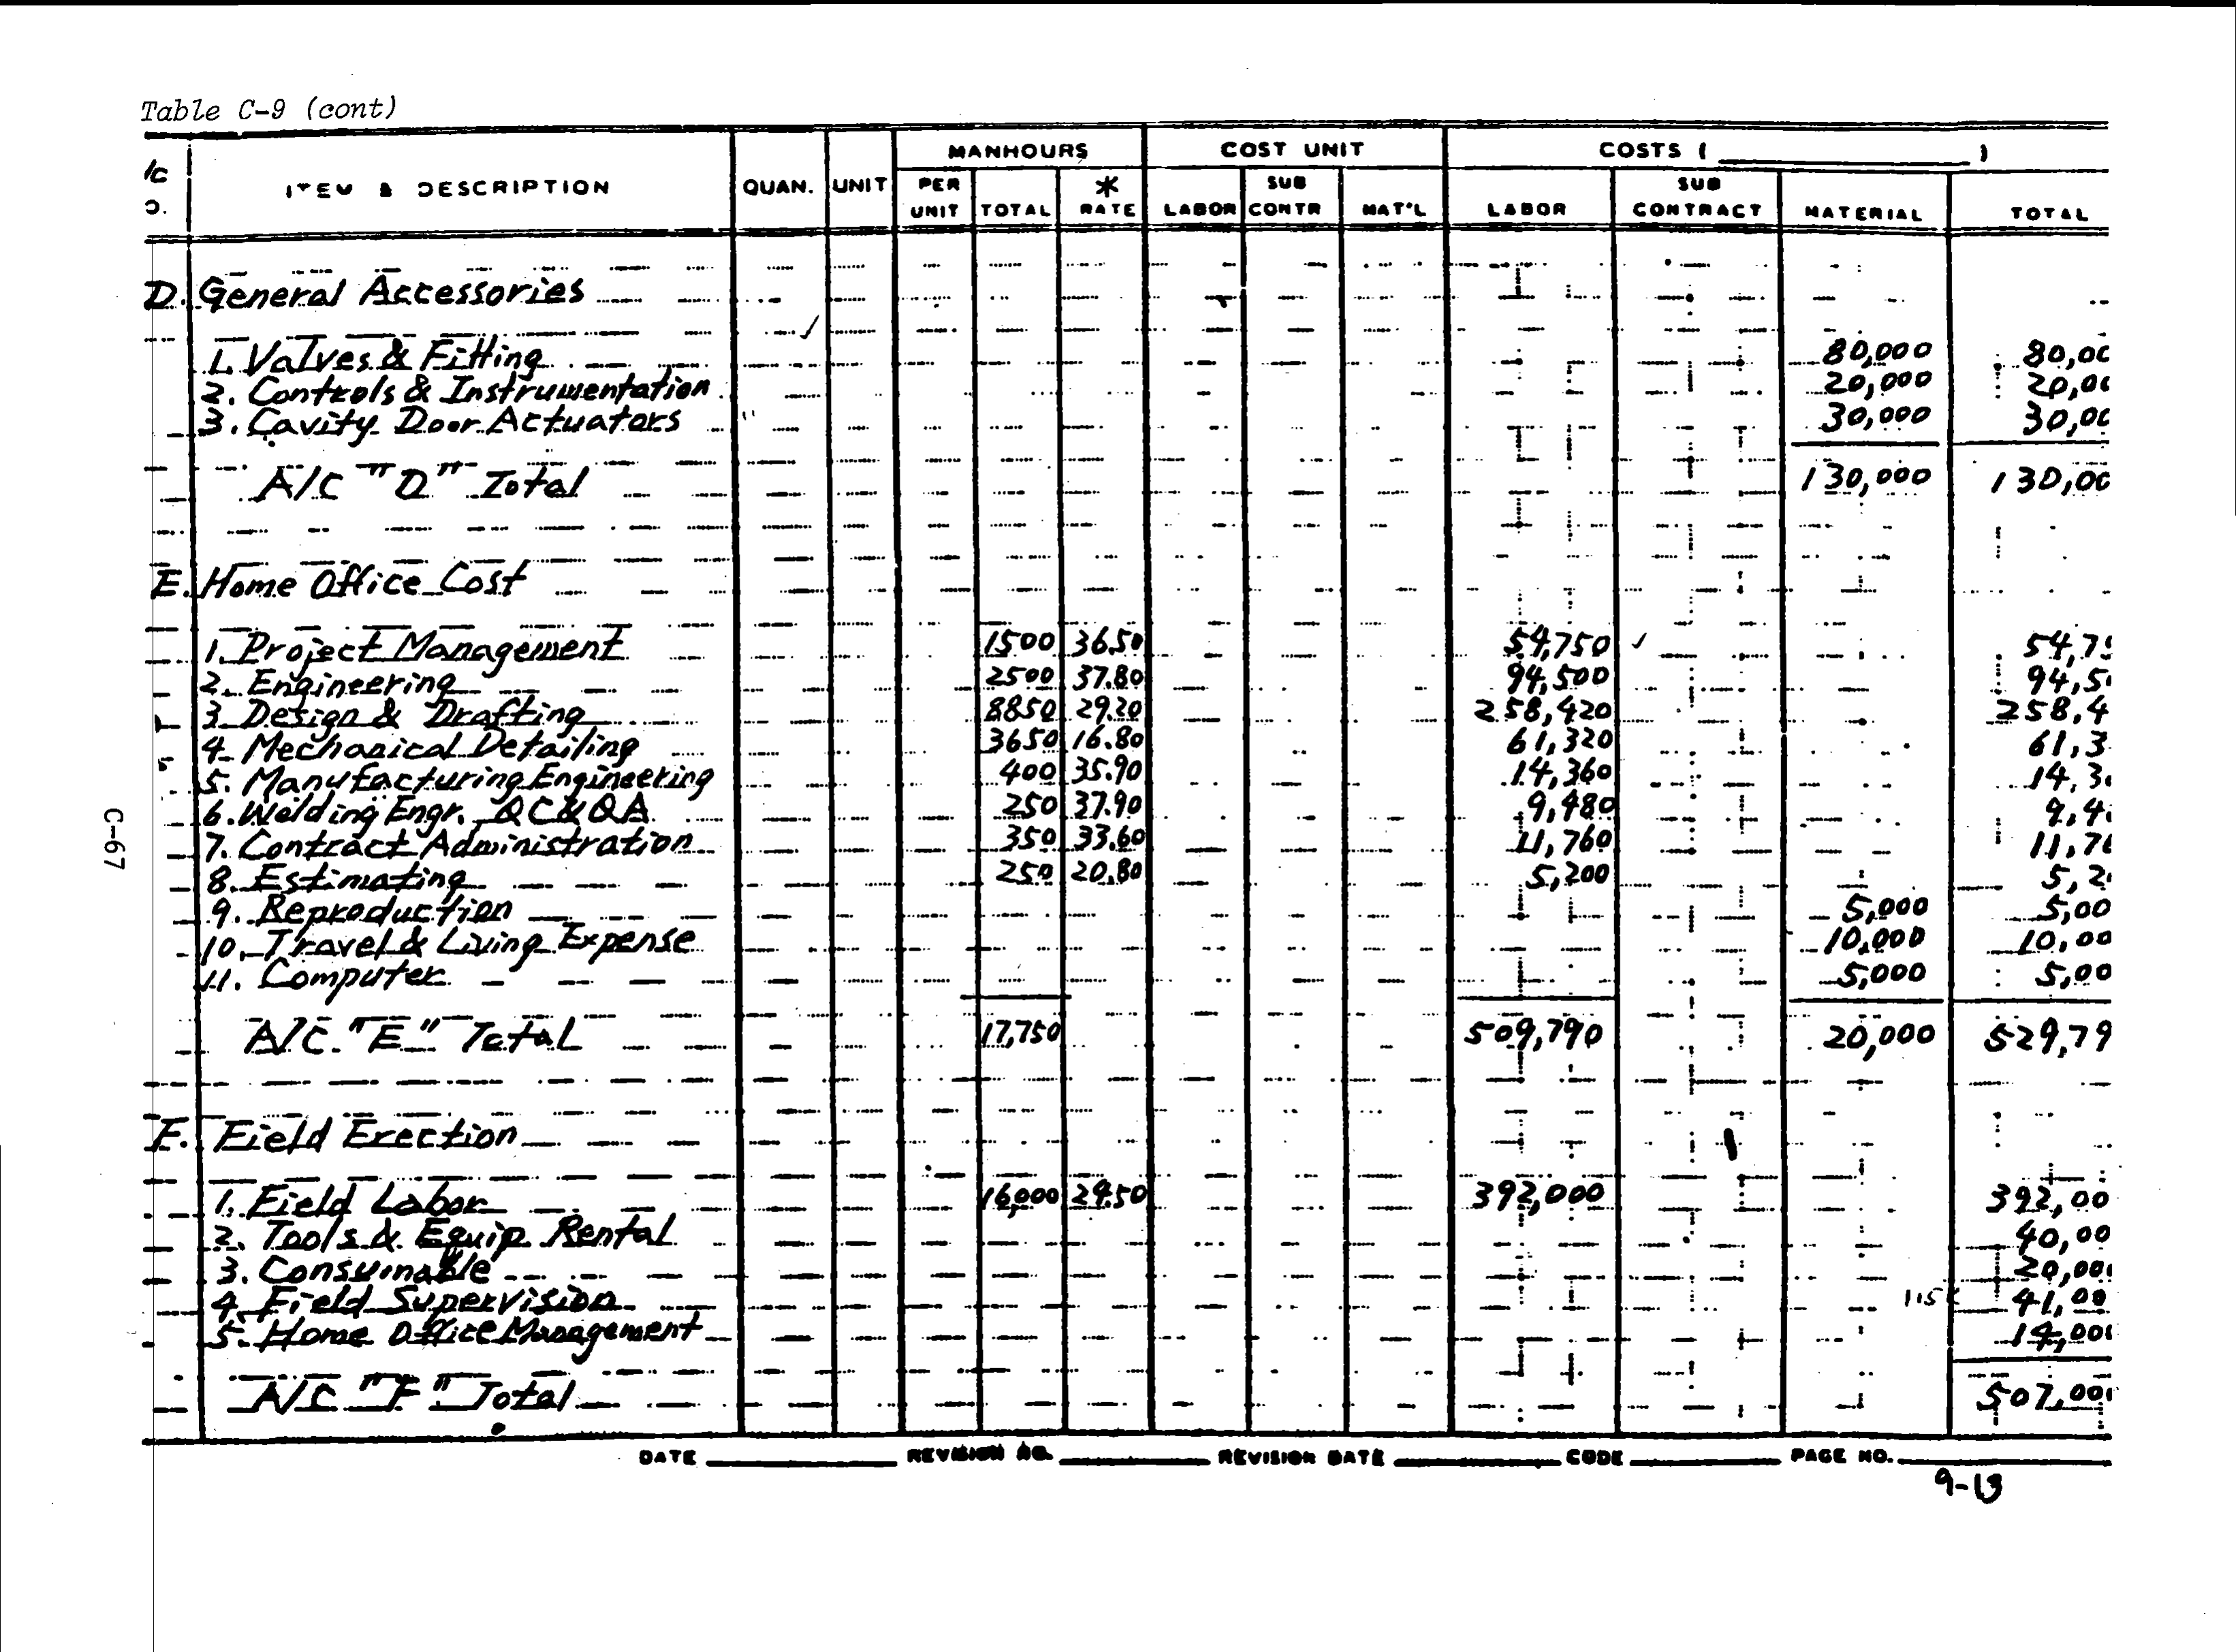 Table C-9 (cont)
MANHOURS COST UNIT COSTS ( )
/c ITEM & DESCRIPTION QUAN. UNIT PER * SUB SUB
o. UNIT TOTAL RATE LABOR CONTR MAT'L LABOR CONTRACT MATERIAL TOTAL
D. General Accessories
1. Valves & Fitting 80,000 80,00
2. Controls & Instrumentation 20,000 20,00
3. Cavity Door Actuators 30,000 30,00
A/C "D" Total 130,000 130,00
E. Home Office Cost
1. Project Management 1500 36.50 54,750 54,75
2. Engineering 2500 37.80 94,500 94,5
3. Design & Drafting 8850 29.20 258,420 258,4
4. Mechanical Detailing 3650 16.80 61,320 61,3
5. Manufacturing Engineering 400 35.90 14,360 14,3
6. Welding Engr. QC & QA 250 37.90 9,480 9,4
7. Contract Administration 350 33.60 11,760 11,76
8. Estimating 250 20.80 5,200 5,2
9. Reproduction 5,000 5,00
10. Travel & Living Expense 10,000 10,00
11. Computer 5,000 5,00
A/C "E" Total 17,750 509,790 20,000 529,79
F. Field Erection
1. Field Labor 16,000 24.50 392,000 392,00
2. Tools & Equip Rental 40,00
3. Consumable 20,00
4. Field Supervision 41,00
5. Home Office Management 14,00
A/C "F" Total 507,00
DATE REVISION NO. REVISION DATE CODE PAGE NO.
9-13
C-67